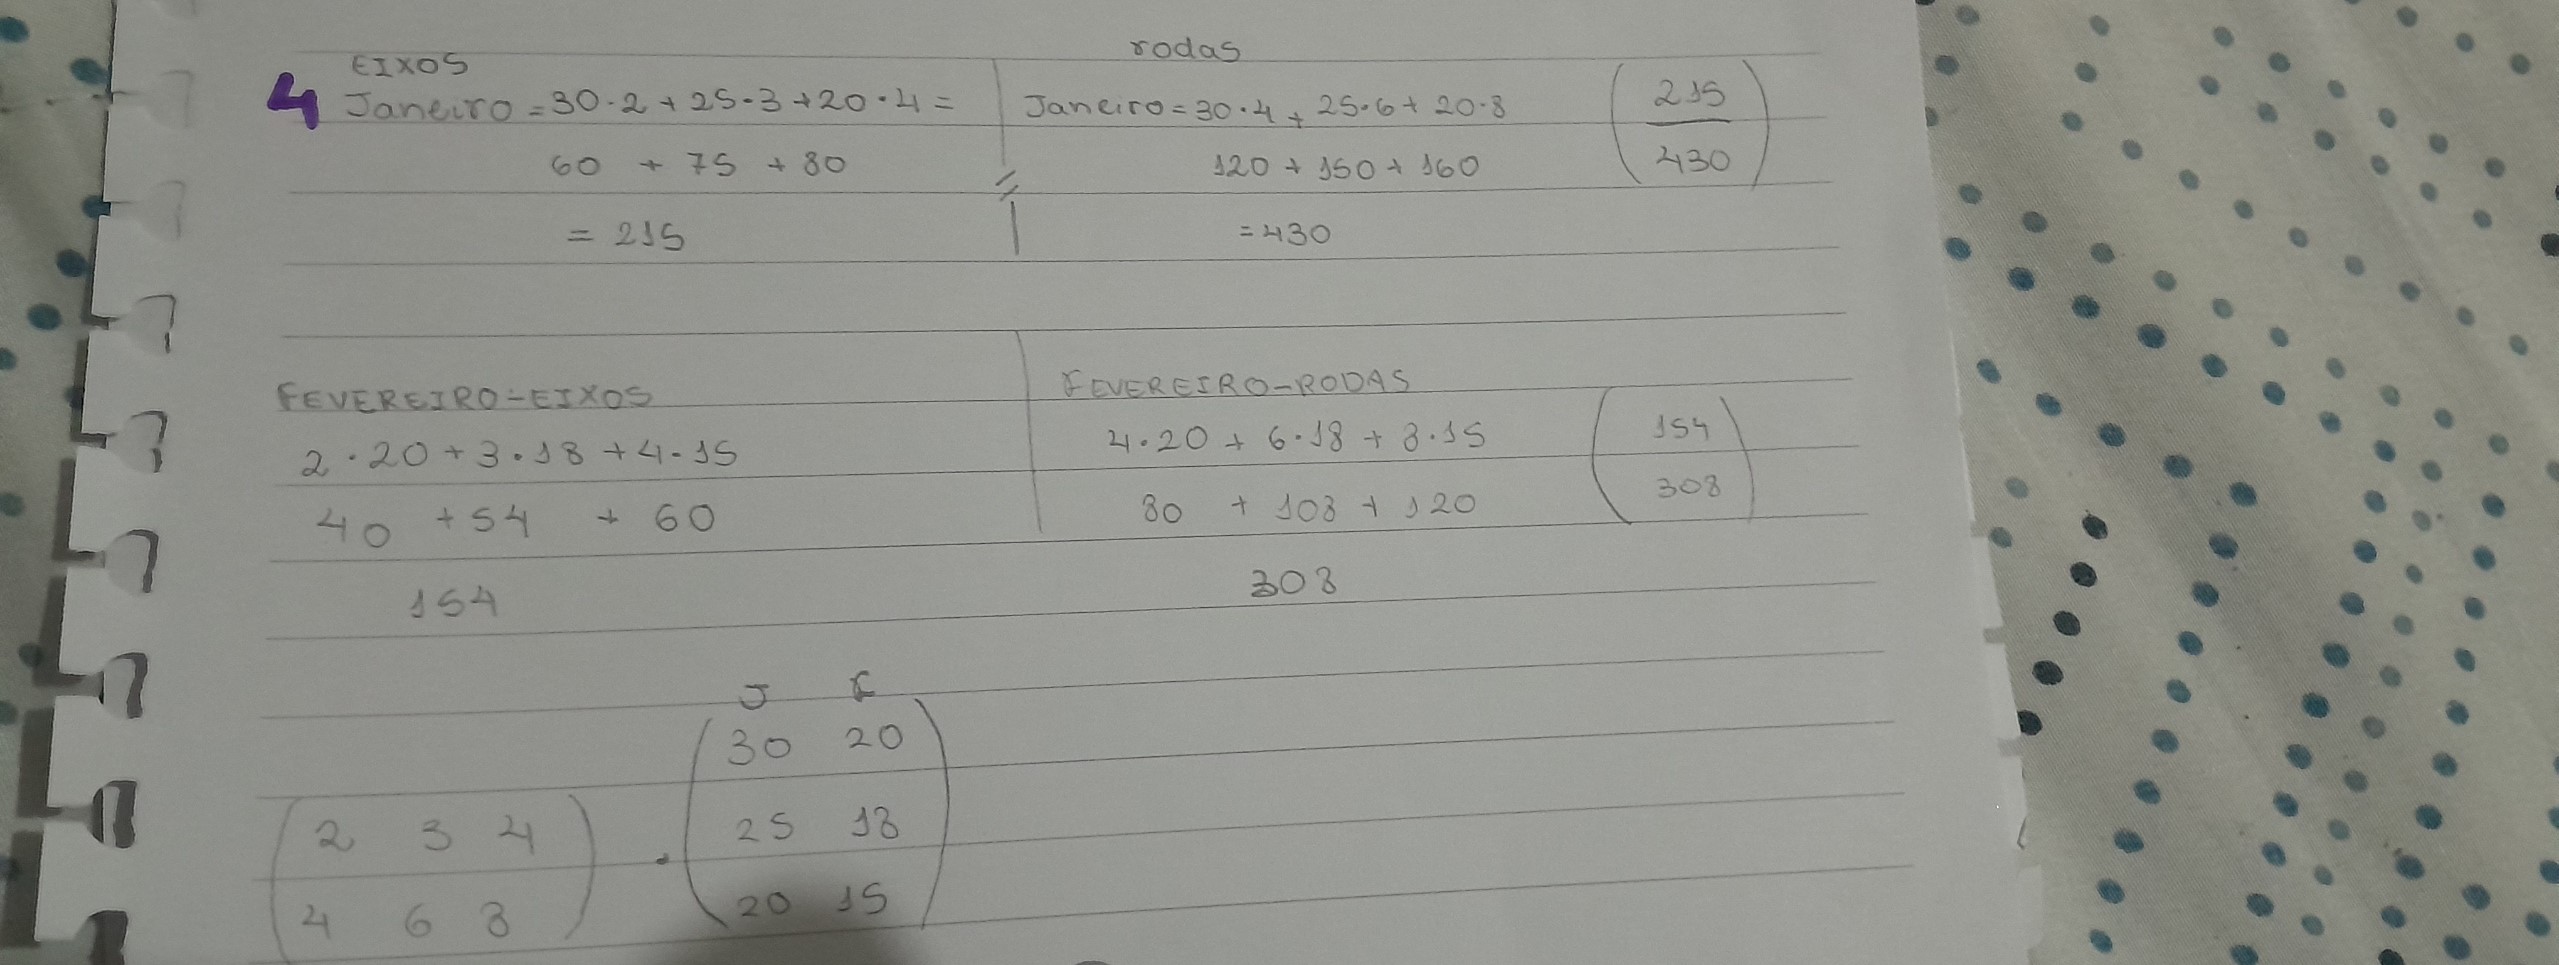 EIXOS
rodas
4 Janeiro = 30·2 + 25·3 + 20·4 =
60 + 75 + 80
= 215
Janeiro = 30·4 + 25·6 + 20·8
120 + 150 + 160
= 430
215
430
FEVEREIRO-EIXOS
2·20 + 3·18 + 4·15
40 + 54 + 60
154
FEVEREIRO-RODAS
4·20 + 6·18 + 8·15
80 + 108 + 120
308
154
308
J F
30 20
25 18
20 15
2 3 4 ·
4 6 8